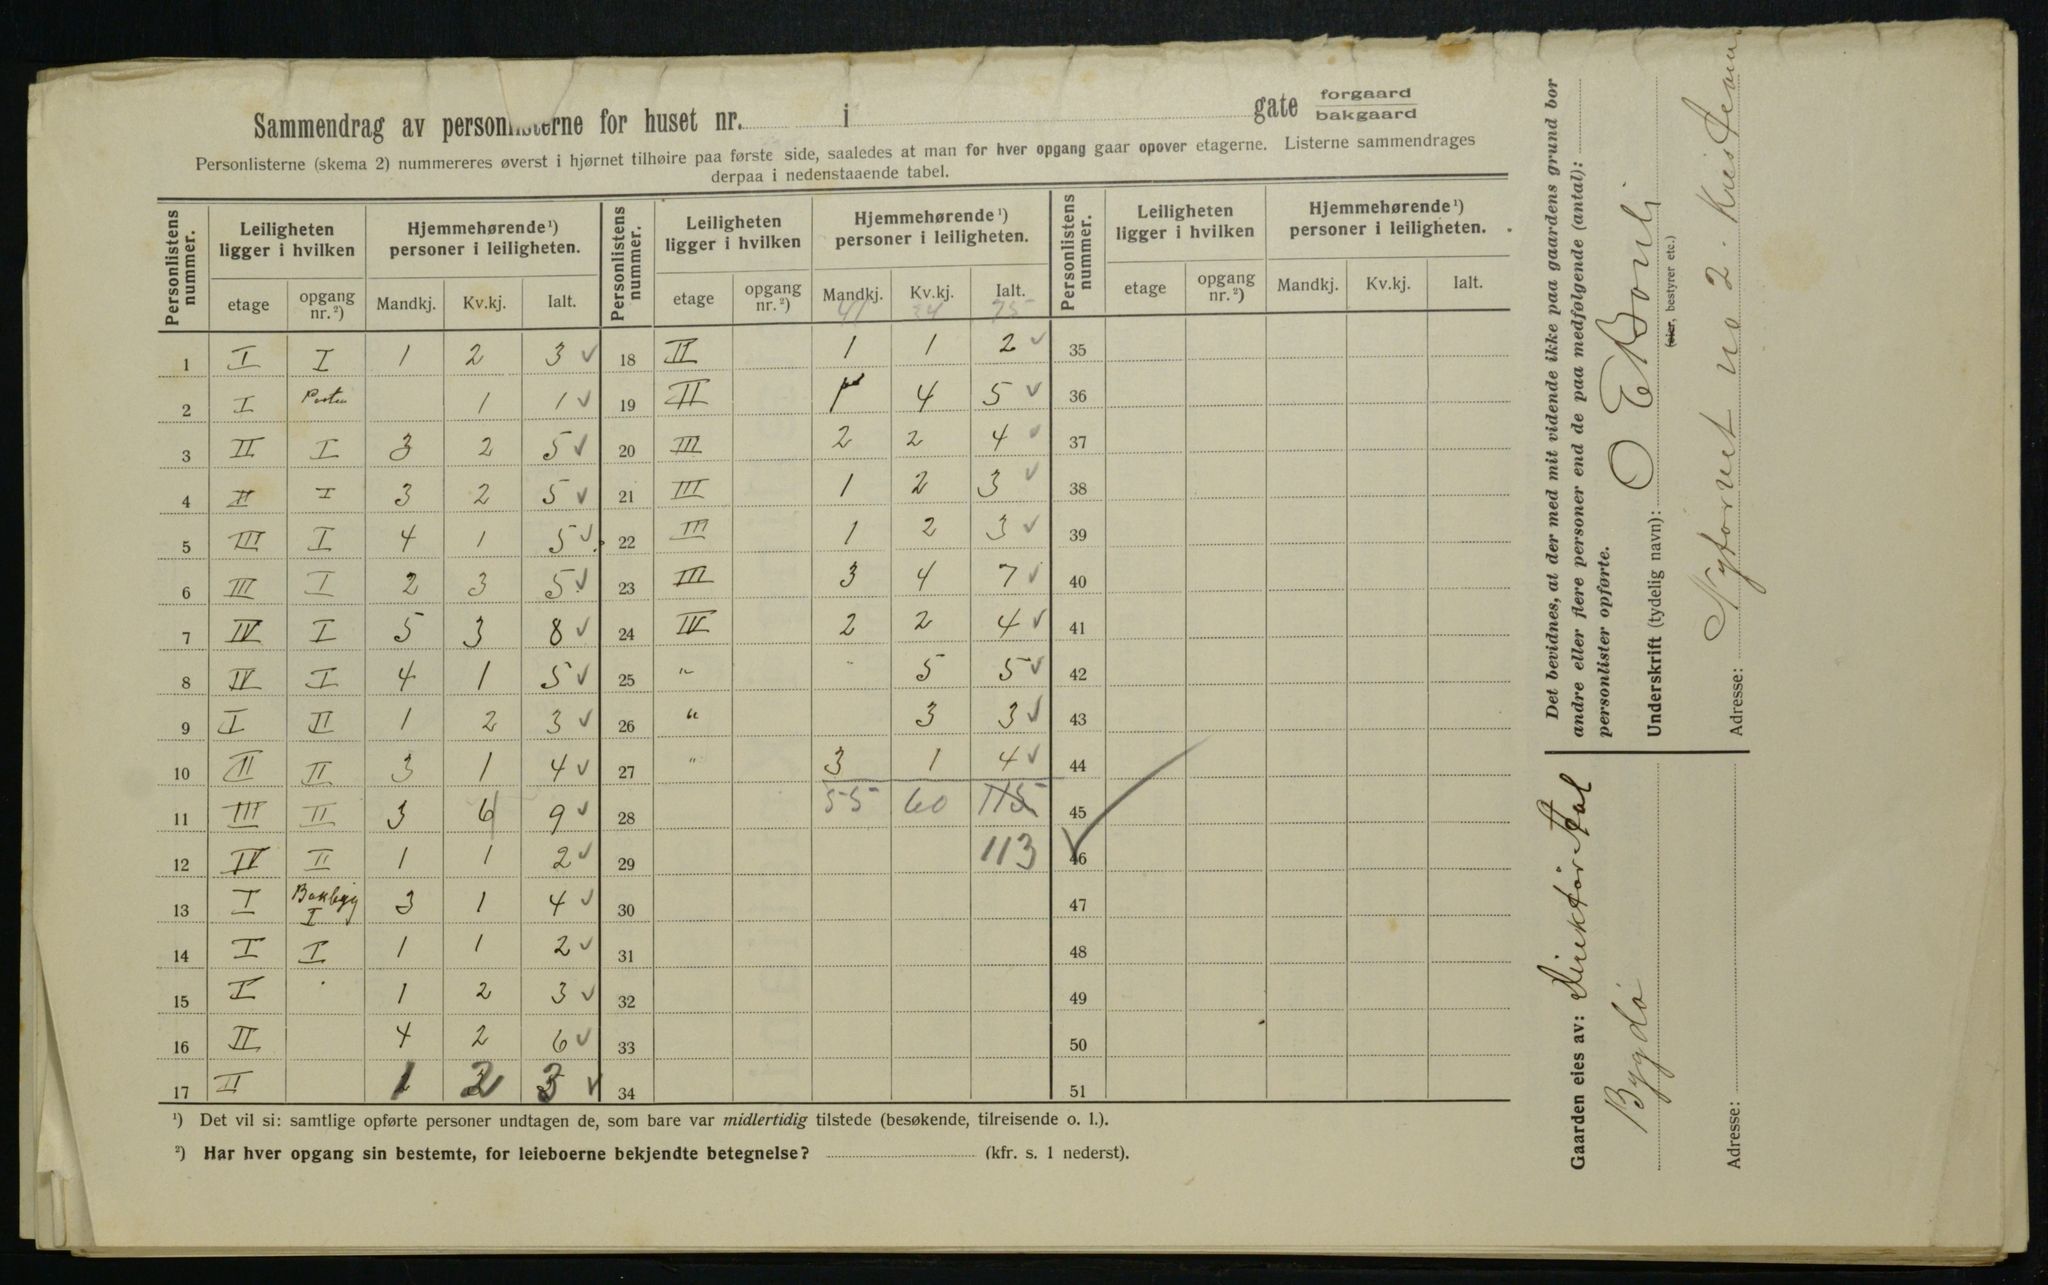 Sammendrag av personlisterne for huset nr. i gate forgaard bakgaard
Personlisterne (skema 2) nummereres øverst i hjørnet tilhøire paa første side, saaledes at man for hver opgang gaar opover etagerne. Listerne sammendrages
derpaa i nedenstaaende tabel.
Personlistens nummer. Leiligheten ligger i hvilken Hjemmehørende¹) personer i leiligheten. Personlistens nummer. Leiligheten ligger i hvilken Hjemmehørende¹) personer i leiligheten. Personlistens nummer. Leiligheten ligger i hvilken Hjemmehørende¹) personer i leiligheten.
etage opgang nr.²) Mandkj. Kv.kj. Ialt. etage opgang nr.²) Mandkj. Kv.kj. Ialt. etage opgang nr.²) Mandkj. Kv.kj. Ialt.
41 34 75
1 I I 1 2 3 ✓ 18 II 1 1 2 ✓ 35
2 I Porten 1 1 ✓ 19 II 1 4 5 ✓ 36
3 II I 3 2 5 ✓ 20 III 2 2 4 ✓ 37
4 II I 3 2 5 ✓ 21 III 1 2 3 ✓ 38
5 III I 4 1 5 ✓ 22 III 1 2 3 ✓ 39
6 III I 2 3 5 ✓ 23 III 3 4 7 ✓ 40
7 IV I 5 3 8 ✓ 24 IV 2 2 4 ✓ 41
8 IV I 4 1 5 ✓ 25 " 5 5 ✓ 42
9 I II 1 2 3 ✓ 26 " 3 3 ✓ 43
10 II II 3 1 4 ✓ 27 " 3 1 4 ✓ 44
11 III II 3 6 9 ✓ 28 55 60 115 45
12 IV II 1 1 2 ✓ 29 113 ✓ 46
13 I Bakbyg I 3 1 4 ✓ 30 47
14 I I 1 1 2 ✓ 31 48
15 I 1 2 3 ✓ 32 49
16 II 4 2 6 ✓ 33 50
17 II 1 2 3 ✓ 34 51
¹) Det vil si: samtlige opførte personer undtagen de, som bare var midlertidig tilstede (besøkende, tilreisende o. l.).
²) Har hver opgang sin bestemte, for leieboerne bekjendte betegnelse? (kfr. s. 1 nederst).
Det bevidnes, at der med mit vidende ikke paa gaardens grund bor
andre eller flere personer end de paa medfølgende (antal):
personlister opførte.
Underskrift (tydelig navn): O E Bonli
(eier, bestyrer etc.)
Adresse: Nytorvet no 2.
Gaarden eies av: Direktør
Bygdø
Adresse: